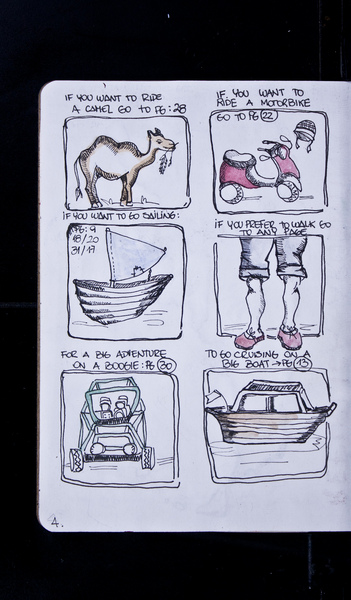 IF YOU WANT TO RIDE
A CAMEL GO TO PG: 28
IF YOU WANT TO
RIDE A MOTORBIKE
GO TO PG 22
IF YOU WANT TO GO SAILING:
PG: 9
18/20
31/19
IF YOU PREFER TO WALK GO
TO ANY PAGE
FOR A BIG ADVENTURE
ON A BOOGIE: PG 30
TO GO CRUISING ON A
BIG BOAT → PG 13
4.